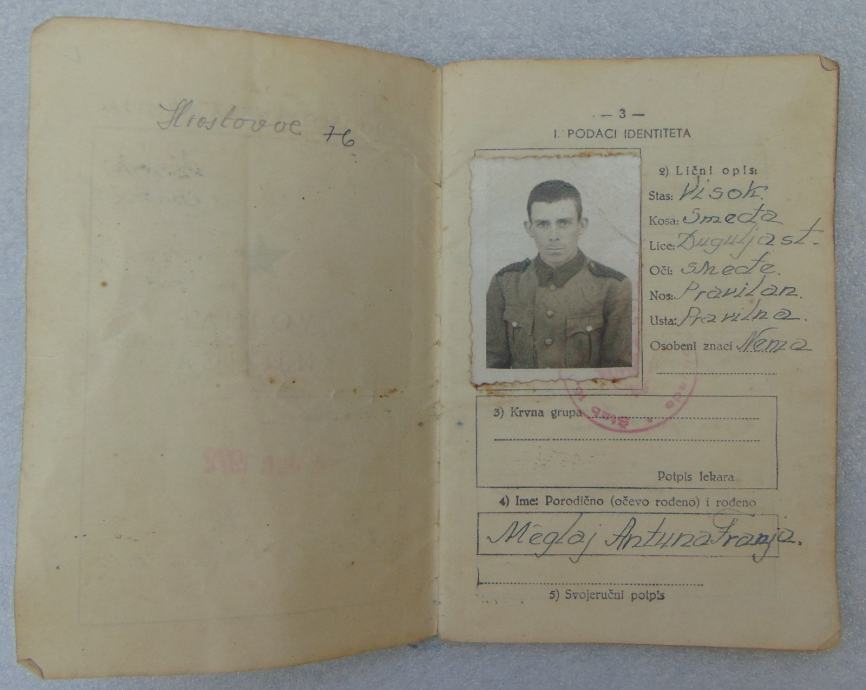 76
— 3 —
I. PODACI IDENTITETA
2) Lični opis:
Stas: Visok.
Kosa: Smeđa
Lice: Duguljast.
Oči: smeđe.
Nos: Pravilan.
Usta: Pravilna.
Osobeni znaci Nema
3) Krvna grupa
Potpis lekara
4) Ime: Porodično (očevo rođeno) i rođeno
Meglaj Antuna Franja.
5) Svojeručni potpis